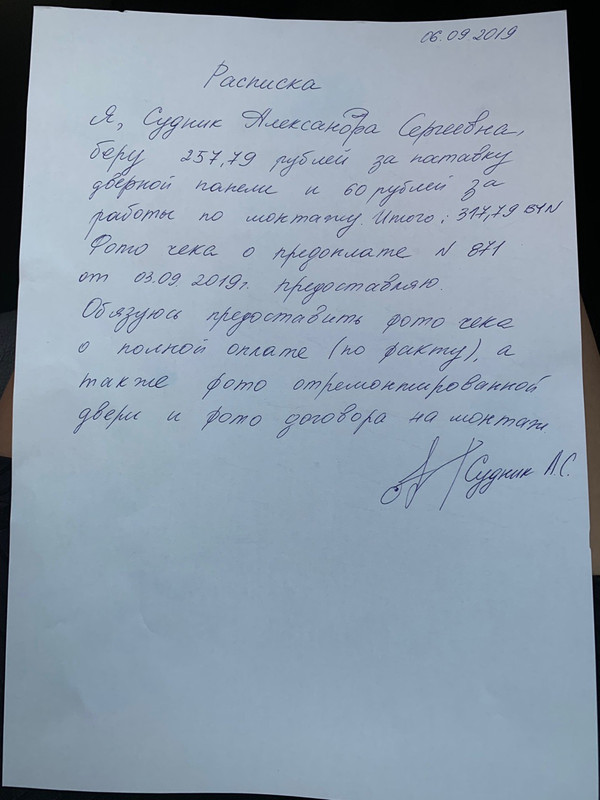 06.09 2019
Расписка
Я, Судник Александра Сергеевна,
беру 257,79 рублей за поставку
дверной панели и 60 рублей за
работы по монтажу. Итого: 317,79 BYN
Фото чека о предоплате N 871
от 03.09.2019г. предоставляю.
Обязуюсь предоставить фото чека
о полной оплате (по факту), а
также фото отремонтированной
двери и фото договора на монтаж
Судник А.С.